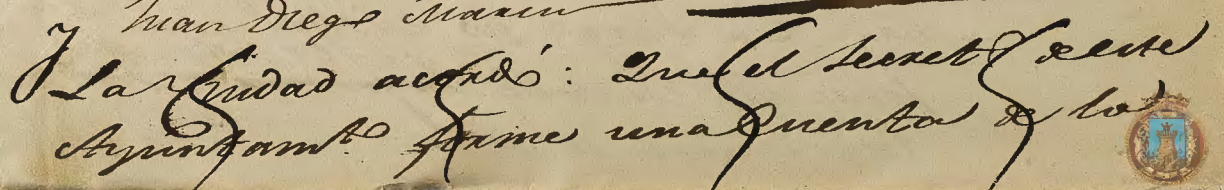 Juan Diego Marin
La Ciudad acordó: Que el Secret.º de este
Ayuntam.to forme una Cuenta de la